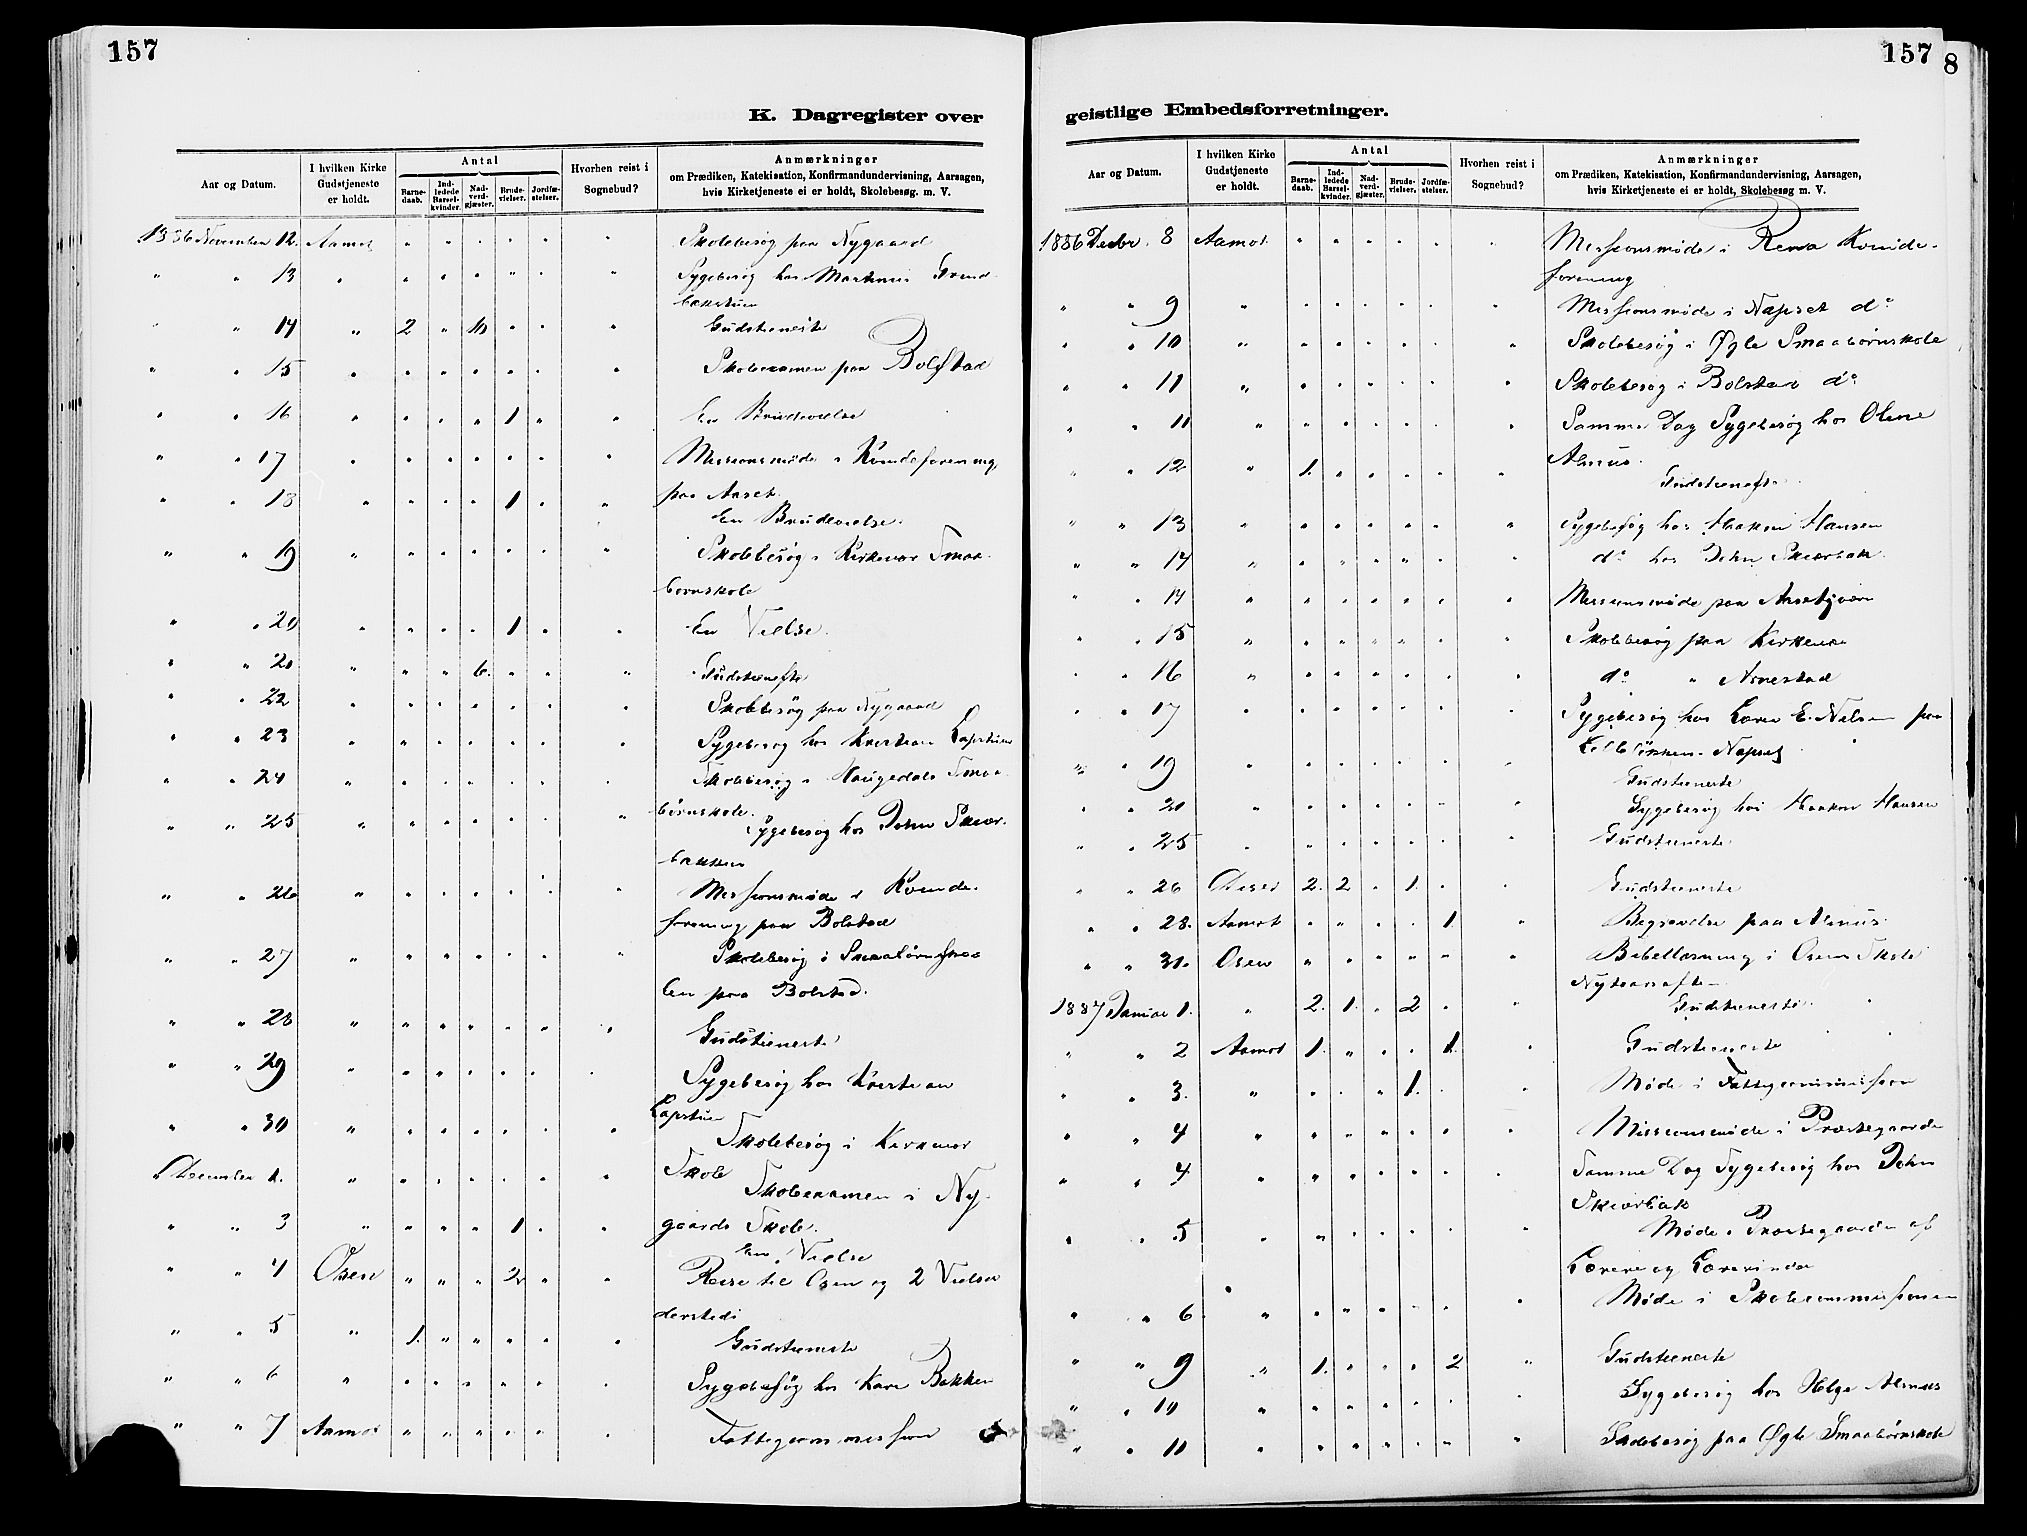 157
K. Dagregister over
Aar og Datum. I hvilken Kirke Gudstjeneste er holdt. Antal Barne-daab. Ind-ledede Barsel-kvinder. Nad-verd-gjæster. Brude-vielser. Jordfæ-stelser. Hvorhen reist i Sognebud? Anmærkninger om Prædiken, Katekisation, Konfirmandundervisning, Aarsagen, hvis Kirketjeneste ei er holdt, Skolebesøg. m. V.
1886 November 12. Aamot " " " " " " Skolebesøg paa Nygaard
" " 13 " " " " " " " Sygebesøg hos Martinus
bakstuen
" " 14 " 2 " 10 " " " Gudstieneste
" " 15 " " " " " " " Skoleexamen paa Bolstad
" " 16 " " " " 1 " " En Brudevielse
" " 17 " " " " " " " Missionsmøde i Kvindeforening
paa Aaset.
" " 18 " " " " 1 " " En Brudevielse.
" " 19 " " " " " " " Skolebesøg i Kirkevar Smaa-
børnskole
" " 20 " " " " 1 " " En Vielse.
" " " " " 6. " " " Gudstieneste
" " 22 " " " " " " " Skolebesøg paa Nygaard
" " 23 " " " " " " " Sygebesøg hos Kristian Lapstuen
" " 24 " " " " " " " Skolebesøg i Haugedals Smaa-
børnskole.
" " 25 " " " " " " " Sygebesøg hos John Skiær-
bakken
" " 26 " " " " " " " Missionsmøde i Kvinde-
forening paa Bolstad
" " 27 " " " " " " " Skolebesøg i Smaabørnsko-
len paa Bolstad.
" " 28 " " " " " " " Gudstieneste
" " 29 " " " " " " " Sygebesøg hos Kristian
Lapstuen
" " 30 " " " " " " " Skolebesøg i Kirkevar
Skole
" December 1. " " " " " " " Skoleexamen i Ny-
gaards Skole.
" " 3 " " " " 1 " " En Vielse
" " 4 Osen " " " 2 " " Reise til Osen og 2 Vielser
dersteds
" " 5 " 1. " " " " " Gudstieneste
" " 6 " " " " " " " Sygebesøg hos Kari Bakken
" " 7 Aamot " " " " " " Fattigcommission
157
8
geistlige Embedsforretninger.
Aar og Datum. I hvilken Kirke Gudstjeneste er holdt. Antal Barne-daab. Ind-ledede Barsel-kvinder. Nad-verd-gjæster. Brude-vielser. Jordfæ-stelser. Hvorhen reist i Sognebud? Anmærkninger om Prædiken, Katekisation, Konfirmandundervisning, Aarsagen, hvis Kirketjeneste ei er holdt, Skolebesøg m. V.
1886 Decbr. 8 Aamot " " " " " " Missionsmøde i Rena Kvinde-
forening
" " 9 " " " " " " " Missionsmøde i Napset do
" " 10 " " " " " " " Skolebesøg i Øgle Smaabørnskole
" " 11 " " " " " " " Skolebesøg i Bolstad do
" " 11 " " " " " " " Samme Dag Sygebesøg hos Olene
Alnus.
" " 12 " 1. " " " " " Gudstieneste.
" " 13 " " " " " " " Sygebesøg hos Haakon Hansen
" " 14 " " " " " " " do hos John Skiærbak.
" " 14 " " " " " " " Missionsmøde paa
" " 15 " " " " " " " Skolebesøg paa Kirkevar
" " 16 " " " " " " " do " Arnestad
" " 17 " " " " " " " Sygebesøg hos E. Nilsen paa
Napset
" " 19 " " " " " " " Gudstieneste
" " 20 " " " " " " " Sygebesøg hos Haakon Hansen
" " 25 " " " " " " " Gudstieneste
" " 26 Osen 2. 2 " 1. " " Gudstieneste
" " 28. Aamot " " " " 1 " Begravelse paa Alnus.
" " 31. Osen " " " " " " Bibellæsning i Osens Skole
Nytaarsaften
1887 Januar 1. " 2. 1. " 2 " " Gudstieneste
" " 2 Aamot 1. " " " 1. " Gudstieneste
" " 3. " " " " 1. " " Møde i Fattigcommission
" " 4 " " " " " " " Missionsmøde i Præstegaarde
" " 4 " " " " " " " Samme Dag Sygebesøg hos John
Skiærbak
" " 5 " " " " " " " Møde i Præstegaarden af
Lærere og Lærerinder
" " 6 " " " " " " " Møde i Skolecommissionen
" " 9 " 1. " " " 2 " Gudstieneste
" " 10 " " " " " " " Sygebesøg hos Helge Alnus
" " 11 " " " " " " " Skolebesøg paa Øgle Smaabørnskole